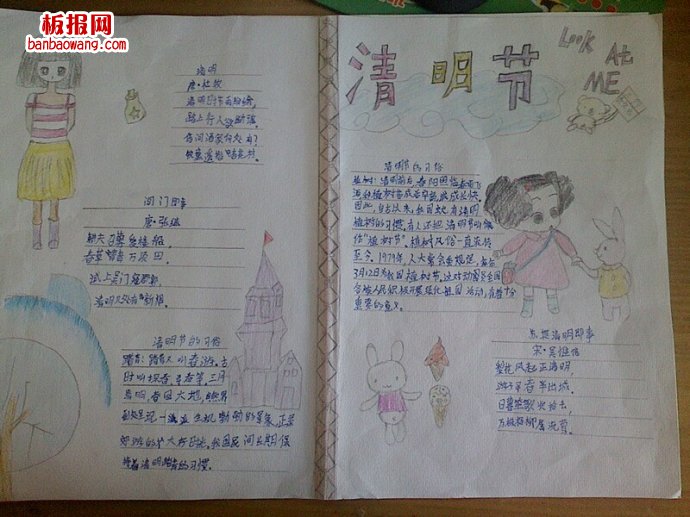 板报网
banbaowang.com
清明
唐·杜牧
清明时节雨纷纷,
路上行人欲断魂。
借问酒家何处有?
牧童遥指杏花村。
闾门即事
唐·张继
耕夫召募逐楼船,
春草青青万顷田。
试上吴门窥郡郭,
清明几处有新烟。
清明节的习俗
踏青:踏青又叫春游。古
时叫探春、寻春等。三月
清明,春回大地,自然界
到处呈现一派生机勃勃的景象,正是
郊游的大好时光。我国民间长期保
持着清明踏青的习惯。
清明节
Look At
ME
清明节的习俗
植树:清明前后,春阳照临,春雨飞
洒,种植树苗成活率高,成长快。
因此,自古以来,我国就有清明
植树的习惯。有人还把清明节叫
作"植树节"。植树风俗一直流传
至今。1979年,人大常委会规定,每年
3月12日为我国植树节。这对动员全国
各族人民积极开展绿化祖国活动,有着十分
重要的意义。
苏堤清明即事
宋·吴惟信
梨花风起正清明,
游子寻春半出城。
日暮笙歌收拾去,
万株杨柳属流莺。